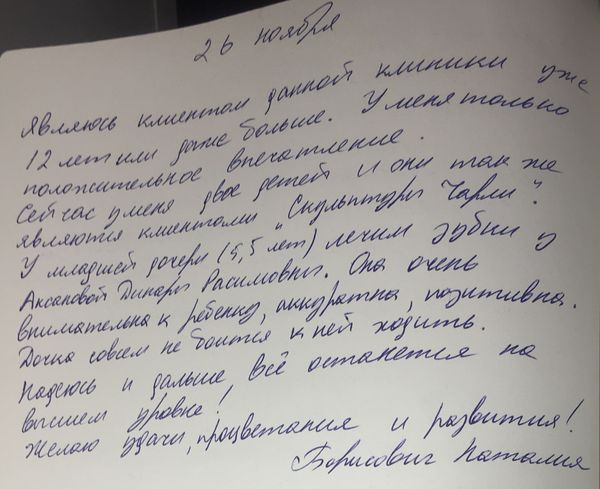 26 ноября
Являюсь клиентом данной клиники уже
12 лет или даже больше. У меня только
положительное впечатление.
Сейчас у меня двое детей и они так же
являются клиентами "Скульптуры Чарли".
У младшей дочери (5,5 лет) лечим зубки у
Аксаповой Динары Расимовны. Она очень
внимательна к ребенку, аккуратна, позитивна.
Дочка совсем не боится к ней ходить.
Надеюсь и дальше, всё останется на
высшем уровне!
Желаю удачи, процветания и развития!
Борисович Наталия